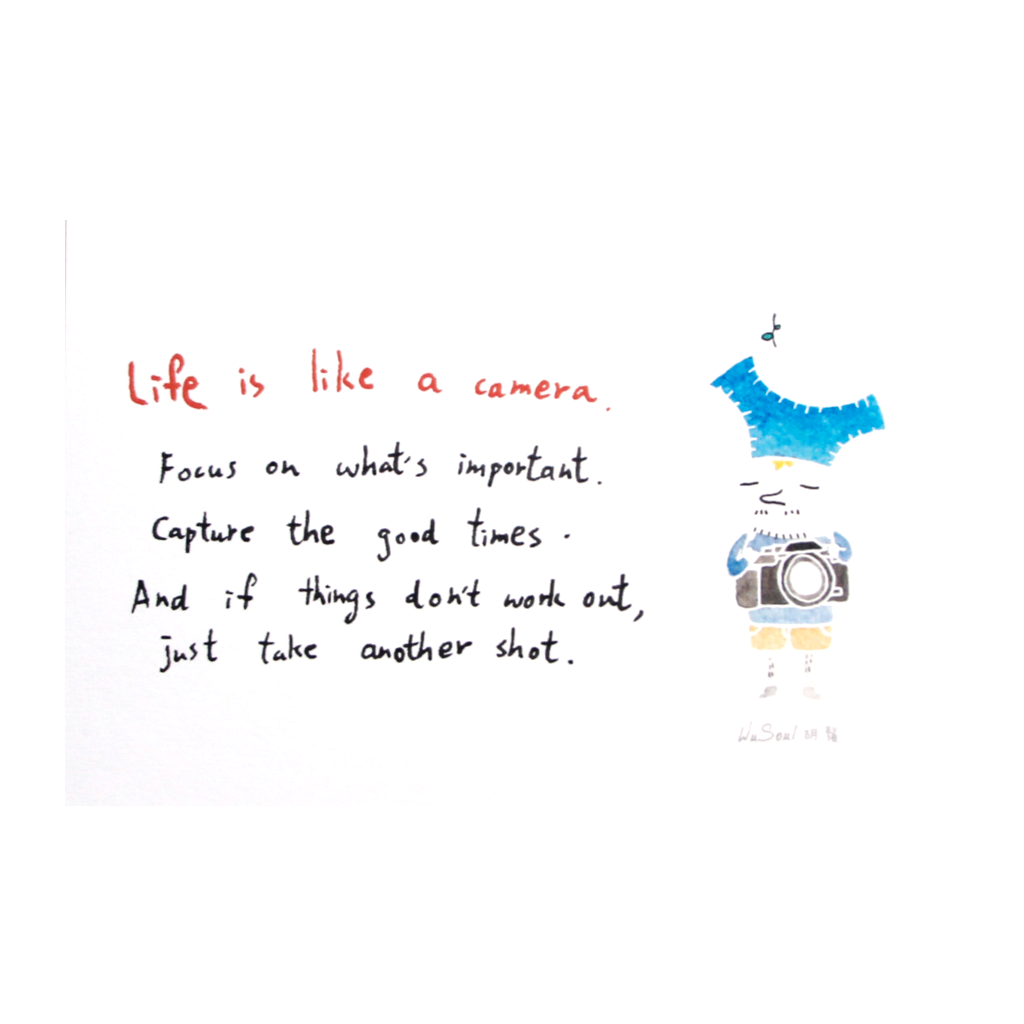 Life is like a camera.
Focus on what's important.
Capture the good times.
And if things don't work out,
just take another shot.
WuSoul